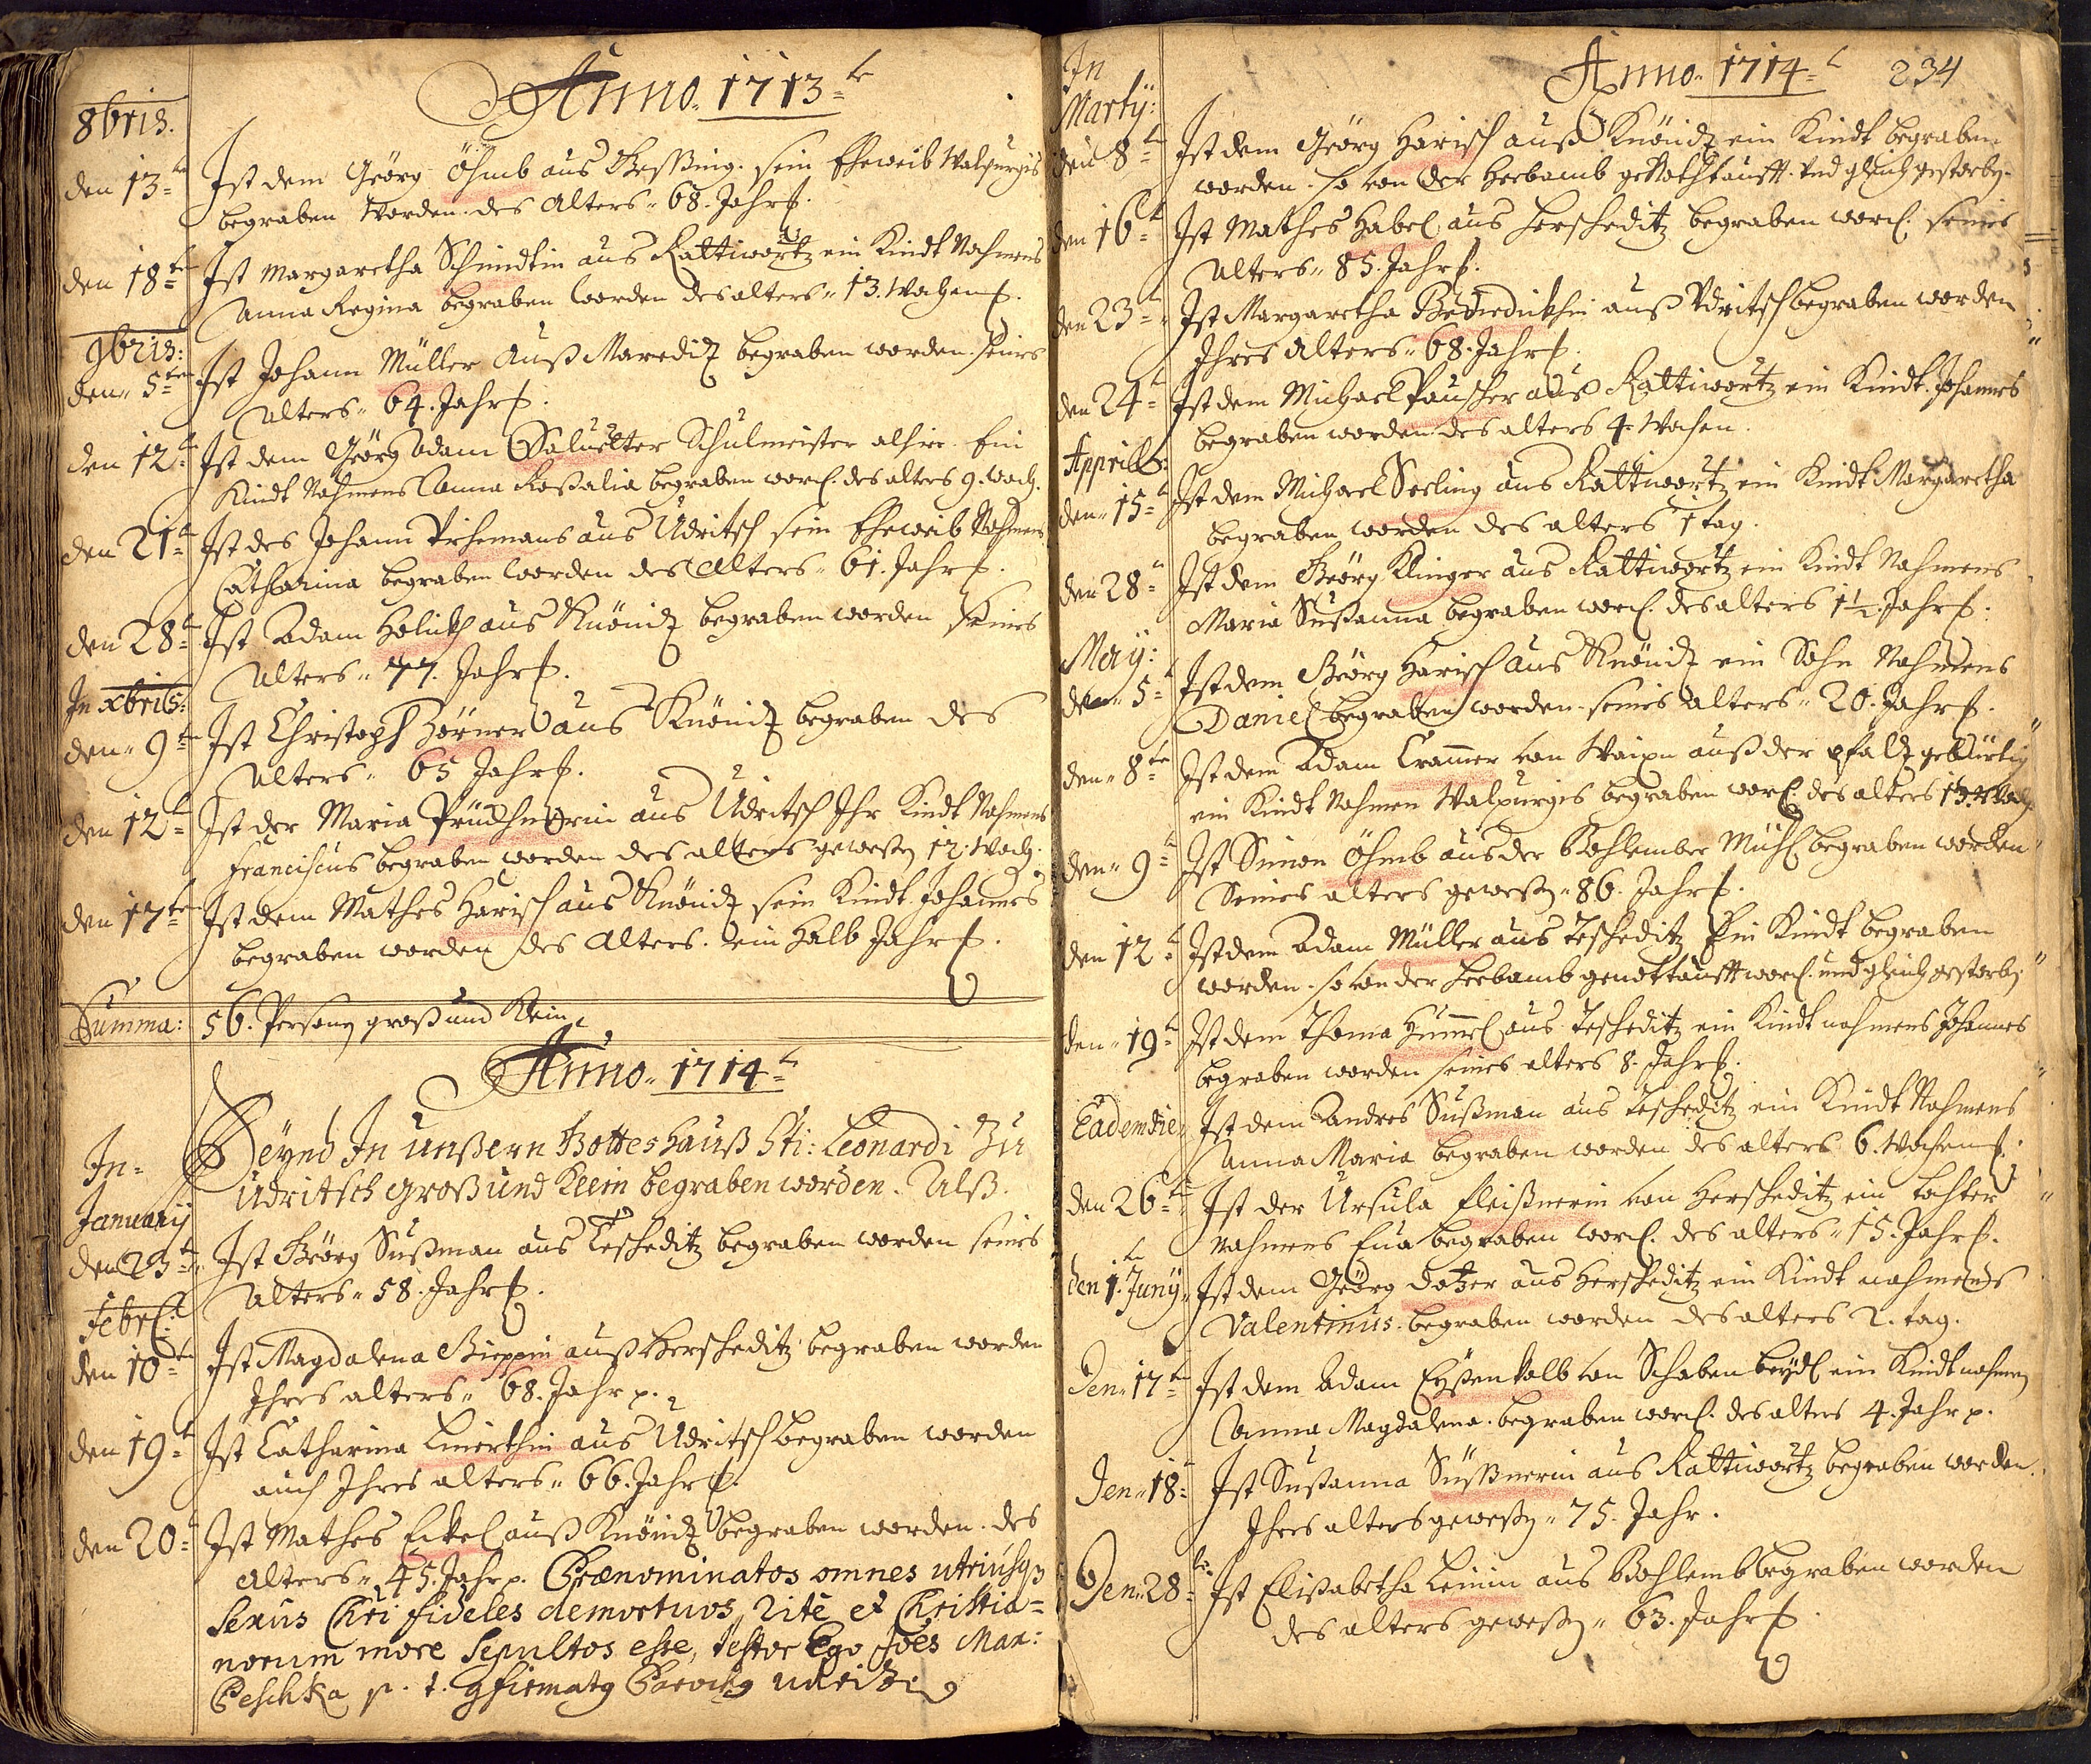 Anno. 1713te
8bris.
den 13te Ist dem Geörg Öhmb aus Gessing. sein Eheweib Walpurgis
begraben worden. des Alters 68. Jahr p.
den 18te Ist Margaretha Schmidtin aus Rattiwortz ein Kindt Nahmens
Anna Regina begraben worden des alters 13. Wochen p.
9bris:
den 5ten Ist Johann Müller auß Maroditz begraben worden. seines
Alters 64. Jahr p.
den 12te Ist dem Geörg Adam Schulmeister alhier. Ein
Kindt Nahmens Anna Roßalia begraben word. des alters 9. Woch.
den 21te Ist des Johann aus Udritsch sein Eheweib Nahmens
Catharina begraben worden des Alters 61. Jahr p.
den 28te Ist Adam Holickh aus Knönitz begraben worden seines
Alters 77. Jahr p.
In xbris:
den 9te Ist Christoph Hörner aus Knönitz begraben des
Alters 65 Jahr p.
den 12te Ist der Maria aus Udritsch Ihr Kindt Nahmens
Franciscus begraben worden des alters geweßen 12. Woch.
den 17te Ist dem Mathes Harisch aus Knönitz sein Kindt Johannes
begraben worden des Alters. ein Halb Jahr p.
Summa: 56. Personen groß und Klein
Anno. 1714te
In Januarij
Seynd In unßern Gotteshauß Sti: Leonardi Zu
Udritsch groß und Klein begraben worden. Alß.
den 23te Ist Geörg Sußman aus Tescheditz begraben worden seines
Alters 58. Jahr p.
Febrl:
den 10te Ist Magdalena Bieppin auß Herscheditz begraben worden
Ihres alters 68. Jahr p.
den 19te Ist Catharina aus Udritsch begraben worden
auch Ihres alters 66. Jahr p.
den 20te Ist Mathes Eckel auß Knönitz begraben worden. des
Alters 45. Jahr p. Praenominatos omnes utriusq3
Sexus Chri fideles demortuos, rite et Christia=
norum more sepultos esse, testor Ego Joës Max:
Peschka p. t. 
Anno 1714 234
In Martij:
den 8te Ist dem Geörg Harisch auß Knönitz ein Kindt begraben
worden. so von der Hebamb geNothtaufft. und gleich gestorben.
den 16te Ist Mathes Habel aus Herscheditz begraben word. seines
Alters 85. Jahr p.
den 23te Ist Margaretha auß Udritsch begraben worden
Ihres Alters 68. Jahr p.
den 24te Ist dem Michael Pauscher aus Rattiwortz ein Kindt. Johannes
begraben worden des alters 4. Wochen.
Apprill:
den 15te Ist dem Michael Seeling aus Rattiwortz ein Kindt Margaretha
begraben worden des alters 1 tag.
den 28te Ist dem Geörg Klinger aus Rattiwortz ein Kindt Nahmens
Maria Sußanna begraben word. des alters 1½ Jahr p.
Mey:
den 5te Ist dem Geörg Harisch aus Knönitz ein Sohn Nahmens
Daniel begraben worden. seines alters 20. Jahr p.
den 8te Ist dem Adam Crammer von auß der Pfaltz gebürtig
ein Kindt Nahmen Walpurgis begraben word. des alters 13. Woch.
den 9te Ist Simon Öhmb aus der Bohlember Mühl begraben worden
Seines alters geweßen 86. Jahr p.
den 12te Ist dem Adam Müller aus Tescheditz Ein Kindt begraben
worden. so von der Hebamb genottaufft word. und gleich gestorben.
den 19te Ist dem Thoma Hummel aus Tescheditz ein Kindt nahmens Johannes
begraben worden seines alters 8. Jahr p.
Eadem die Ist dem Andres Sußman aus Tescheditz ein Kindt Nahmens
Anna Maria begraben worden des alters 6. Wochen p.
den 26te Ist der Ursula Fleißnerin von Herscheditz ein Tochter
Nahmens Eua begraben word. des alters 15. Jahr p.
den 1te Juny Ist dem Geörg Dotzer aus Herscheditz ein Kindt nahmens
Valentinus. begraben worden des alters 2. tag.
Den 17te Ist dem Adam Eyßenkolb von ein Kindt nahmens
Anna Magdalena. begraben word. des alters 4. Jahr p.
Den 18te Ist Sußanna Süßnerin aus Rattiwortz begraben worden.
Ihres alters geweßen 75. Jahr.
Den 28te Ist Elisabetha Leinin aus Bohlemb begraben worden
des alters geweßen 63. Jahr p.